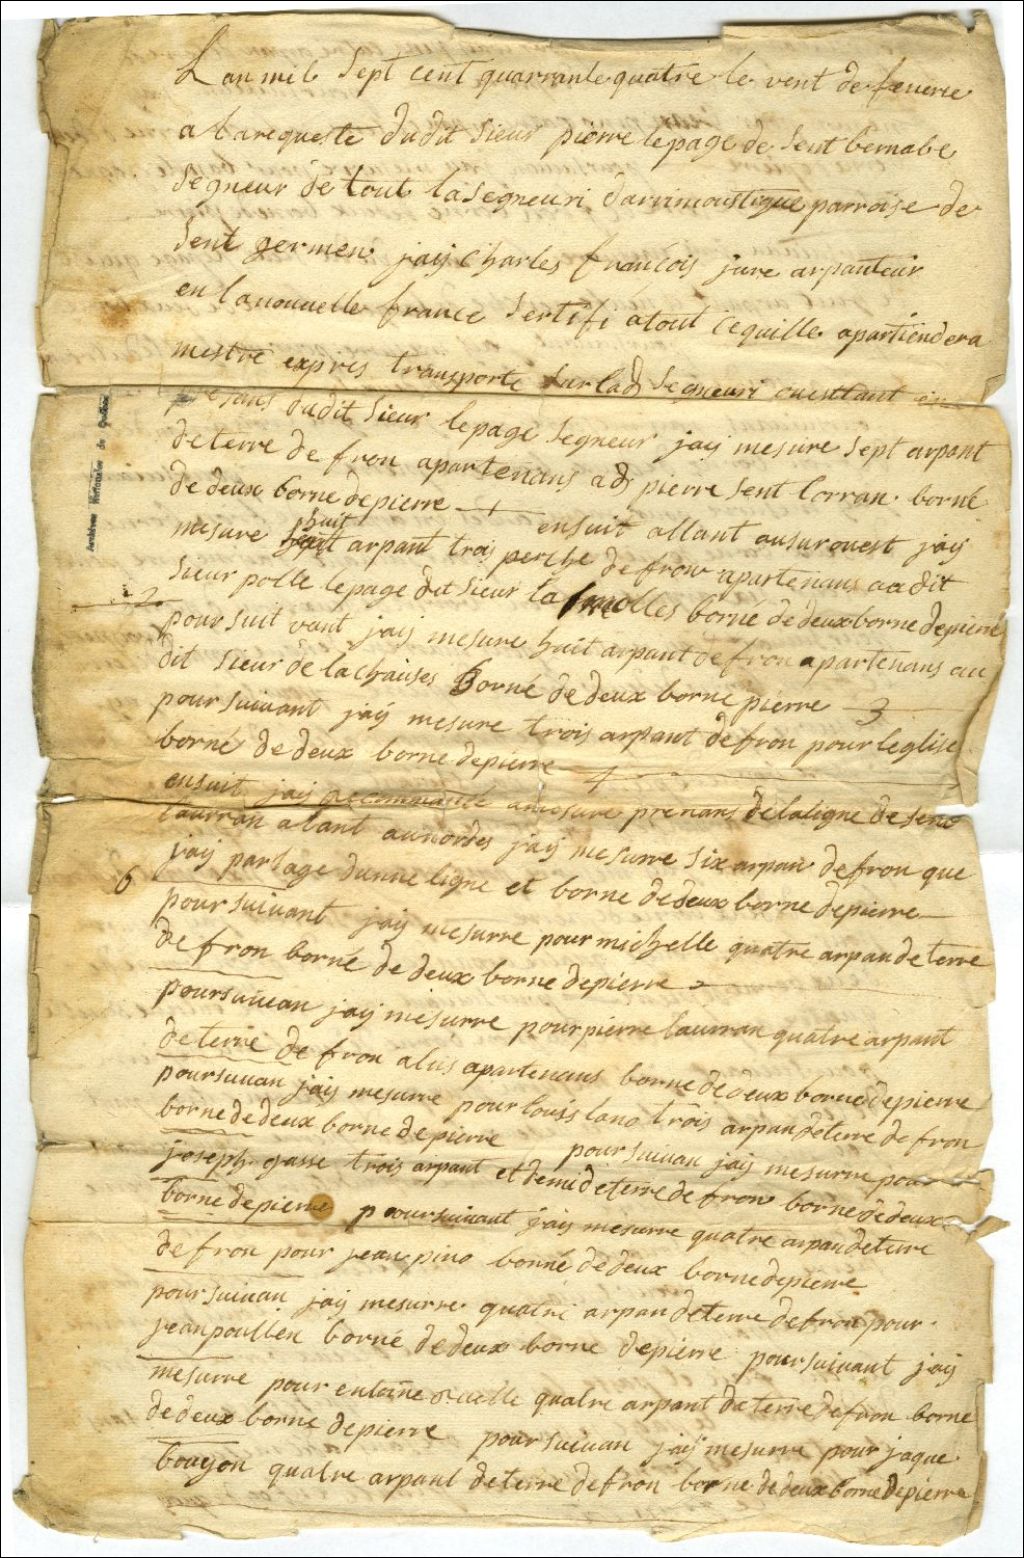 Lan mil Sept cent quarrante quatre le vent de feuerie
a Larequeste dudit Sieur pierre lepage de Sent bernabe
Segneur de tout laSegneuri darimoustique parroise de
Sent germen jaij Charles françois jure arpanteur
en lanouuelle france Sertifi atout cequille apartiendera
mestre expres transporte Surlad Segneuri ouestant en
presans dudit Sieur lepage Segneur jaij mesure Sept arpant
de terre de fron apartenans ad pierre Sent lorran borné
de deux borne depierre
ensuit allant ausurouest jaij
mesure huit arpant trois perche de fron apartenans audit
Sieur polle lepage dit Sieur la molles borné dedeuxborne depierre
2
poursuit vant jaij mesure huit arpant defron apartenans au
dit Sieur de lachaises Borné de deux borne pierre 3
poursuivant jaij mesure trois arpant defron pour leglise
borné de deux borne depierre 4
ensuit jaij recommancé amesure prenans delaligne de Seno
laurran alant aunordes jaij mesurre six arpan defron que
jaij partage dunne ligne et borne dedeux borne depierre
6
poursuiuant jaij mesurre pour michelle quatre arpan deterre
de fron borné de deux borne depierre
poursuiuan jaij mesurre pourpierre laurran quatre arpant
deterre de fron aluis apartenans borne dedeux borne depierre
poursuiuan jaij mesurre pour louis lano trois arpan deterre de fron
bornededeux borne depierre poursuiuan jaij mesurre pour
joseph gasse trois arpant et demi deterre defron borne dedeux
borne depierre pourSuiuant jaij mesurre quatre arpandeterre
defron pour jean pino borné dedeux bornedepierre
pourSuiuan jaij mesurre quatre arpan deterre defron pour
jeanpoullen borné dedeux borne depierre poursuivant jaij
mesurre pour entoine ruelle quatre arpant deterre defron borne
dedeux borne depierre pour suiuan jaij mesurre pour jaque
bouyon quatre arpant deterre defron borne dedeuxborne depierre